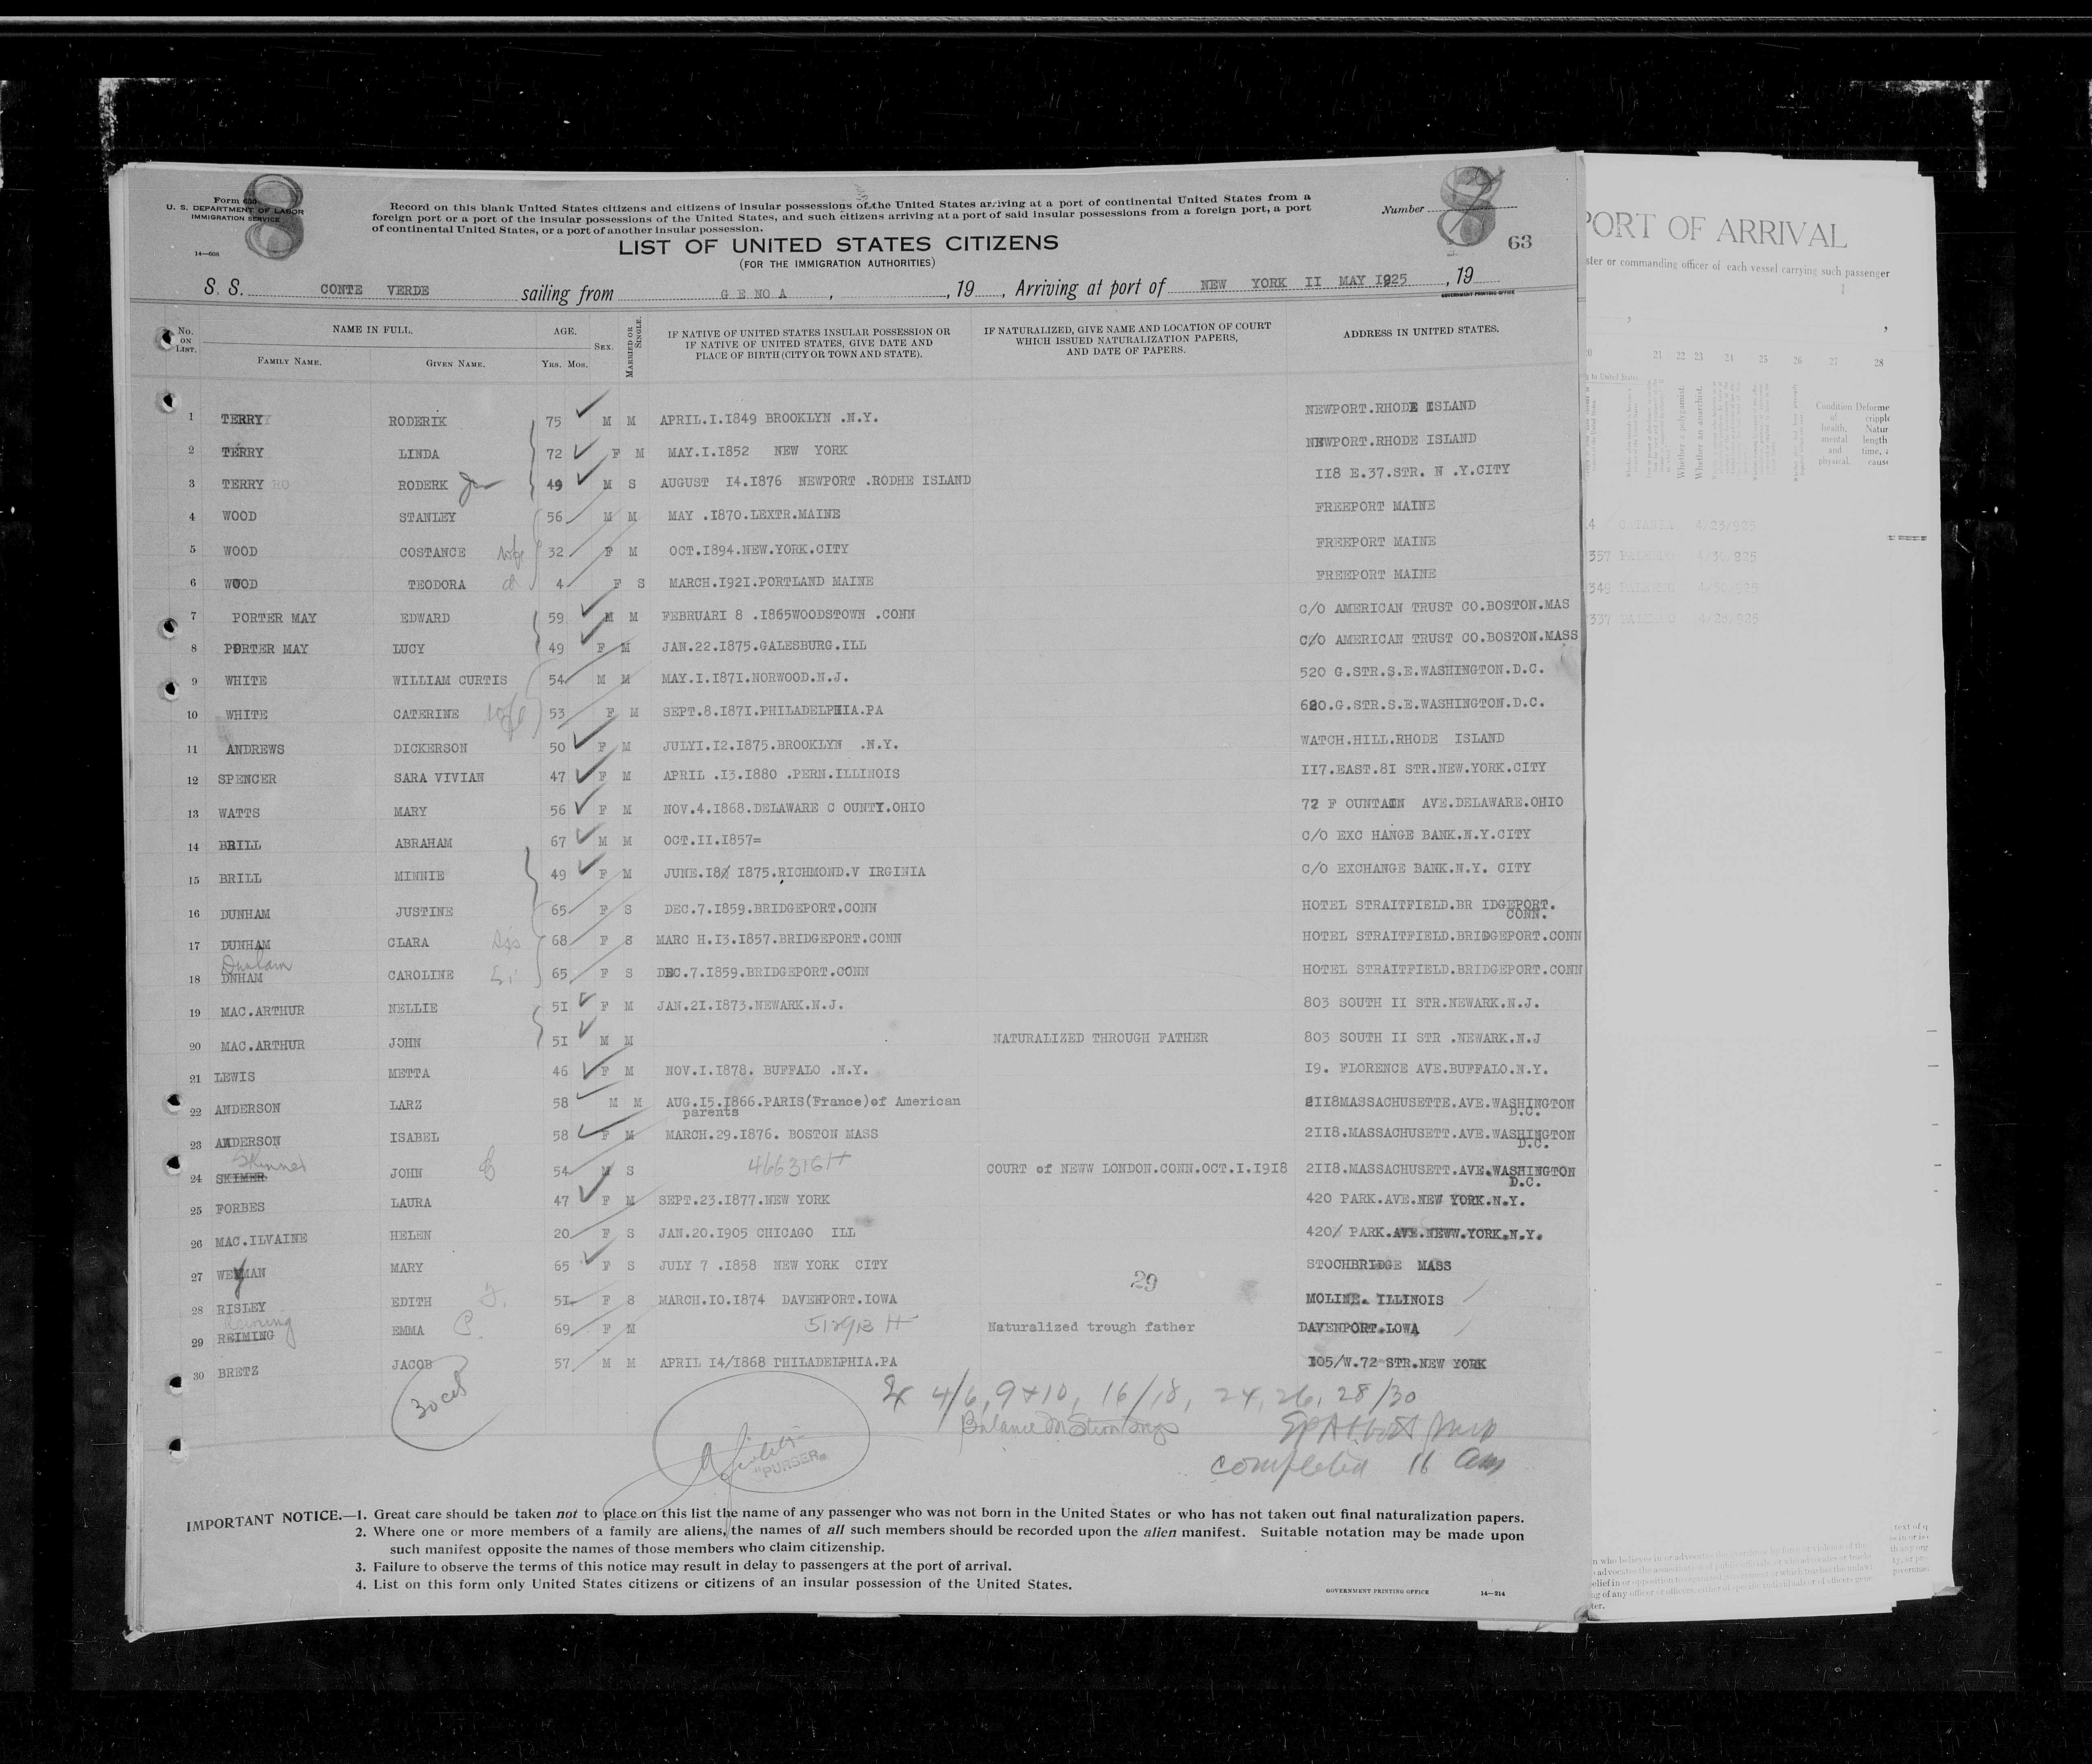 Form 630
U. S. DEPARTMENT OF LABOR
IMMIGRATION SERVICE
14—608
8
Record on this blank United States citizens and citizens of insular possessions of the United States arriving at a port of continental United States from a
foreign port or a port of the insular possessions of the United States, and such citizens arriving at a port of said insular possessions from a foreign port, a port
of continental United States, or a port of another insular possession.
Number 8
63
LIST OF UNITED STATES CITIZENS
(FOR THE IMMIGRATION AUTHORITIES)
S. S. CONTE VERDE sailing from GENOA, , 19 , Arriving at port of NEW YORK II MAY I925 , 19
GOVERNMENT PRINTING OFFICE
No. ON LIST. NAME IN FULL. FAMILY NAME. GIVEN NAME. AGE. YRS. MOS. SEX. MARRIED OR SINGLE. IF NATIVE OF UNITED STATES INSULAR POSSESSION OR IF NATIVE OF UNITED STATES, GIVE DATE AND PLACE OF BIRTH (CITY OR TOWN AND STATE). IF NATURALIZED, GIVE NAME AND LOCATION OF COURT WHICH ISSUED NATURALIZATION PAPERS, AND DATE OF PAPERS. ADDRESS IN UNITED STATES.
1 TERRY RODERIK 75 M M APRIL.I.I849 BROOKLYN .N.Y. NEWPORT.RHODE ISLAND
2 TERRY LINDA 72 F M MAY.I.I852 NEW YORK NEWPORT.RHODE ISLAND
3 TERRY RODERK Jr 49 M S AUGUST I4.I876 NEWPORT .RODHE ISLAND II8 E.37.STR. N .Y.CITY
4 WOOD STANLEY 56 M M MAY .I870.LEXTR.MAINE FREEPORT MAINE
5 WOOD COSTANCE wife 32 F M OCT.I894.NEW.YORK.CITY FREEPORT MAINE
6 WOOD TEODORA d 4 F S MARCH.I92I.PORTLAND MAINE FREEPORT MAINE
7 PORTER MAY EDWARD 59 M M FEBRUARI 8 .I865WOODSTOWN .CONN C/O AMERICAN TRUST CO.BOSTON.MAS
8 PORTER MAY LUCY 49 F M JAN.22.I875.GALESBURG.ILL C/O AMERICAN TRUST CO.BOSTON.MASS
9 WHITE WILLIAM CURTIS 54 M M MAY.I.I87I.NORWOOD.N.J. 520 G.STR.S.E.WASHINGTON.D.C.
10 WHITE CATERINE wife 53 F M SEPT.8.I87I.PHILADELPHIA.PA 620.G.STR.S.E.WASHINGTON.D.C.
11 ANDREWS DICKERSON 50 F M JULYI.I2.I875.BROOKLYN .N.Y. WATCH.HILL.RHODE ISLAND
12 SPENCER SARA VIVIAN 47 F M APRIL .I3.I880 .PERN.ILLINOIS II7.EAST.8I STR.NEW.YORK.CITY
13 WATTS MARY 56 F M NOV.4.I868.DELAWARE C OUNTY.OHIO 72 F OUNTAIN AVE.DELAWARE.OHIO
14 BRILL ABRAHAM 67 M M OCT.II.I857= C/O EXC HANGE BANK.N.Y.CITY
15 BRILL MINNIE 49 F M JUNE.I8 I875.RICHMOND.V IRGINIA C/O EXCHANGE BANK.N.Y. CITY
16 DUNHAM JUSTINE 65 F S DEC.7.I859.BRIDGEPORT.CONN HOTEL STRAITFIELD.BR IDGEPORT.
CONN.
17 DUNHAM CLARA sis 68 F S MARC H.I3.I857.BRIDGEPORT.CONN HOTEL STRAITFIELD.BRIDGEPORT.CONN
Dunham
18 DNHAM CAROLINE 65 F S DEC.7.I859.BRIDGEPORT.CONN HOTEL STRAITFIELD.BRIDGEPORT.CONN
19 MAC.ARTHUR NELLIE 5I F M JAN.2I.I873.NEWARK.N.J. 803 SOUTH II STR.NEWARK.N.J.
20 MAC.ARTHUR JOHN 5I M M NATURALIZED THROUGH FATHER 803 SOUTH II STR .NEWARK.N.J
21 LEWIS METTA 46 F M NOV.I.I878. BUFFALO .N.Y. I9. FLORENCE AVE.BUFFALO.N.Y.
22 ANDERSON LARZ 58 M M AUG.I5.I866.PARIS(France)of American 2II8MASSACHUSETTE.AVE.WASHINGTON
parents D.C.
23 ANDERSON ISABEL 58 F M MARCH.29.I876. BOSTON MASS 2II8.MASSACHUSETT.AVE.WASHINGTON
D.C.
Skinner
24 SKIMER JOHN 54 M S 466316H COURT of NEWW LONDON.CONN.OCT.I.I9I8 2II8.MASSACHUSETT.AVE.WASHINGTON
D.C.
25 FORBES LAURA 47 F M SEPT.23.I877.NEW YORK 420 PARK.AVE.NEW YORK.N.Y.
26 MAC.ILVAINE HELEN 20 F S JAN.20.I905 CHICAGO ILL 420/ PARK.AVE.NEWW.YORK.N.Y.
27 WEYMAN MARY 65 F S JULY 7 .I858 NEW YORK CITY STOCHBRIDGE MASS
29
28 RISLEY EDITH 5I F S MARCH.I0.I874 DAVENPORT.IOWA MOLINE. ILLINOIS
29 REIMING EMMA 69 F M Naturalized trough father DAVENPORT.LOWA
30 BRETZ JACOB 57 M M APRIL I4/I868 PHILADELPHIA.PA I05/W.72 STR.NEW YORK
4/6, 9+10, 16/18, 24, 26, 28/30
Balance
completed 11 am
"PURSER"
IMPORTANT NOTICE.—1. Great care should be taken not to place on this list the name of any passenger who was not born in the United States or who has not taken out final naturalization papers.
2. Where one or more members of a family are aliens, the names of all such members should be recorded upon the alien manifest. Suitable notation may be made upon
such manifest opposite the names of those members who claim citizenship.
3. Failure to observe the terms of this notice may result in delay to passengers at the port of arrival.
4. List on this form only United States citizens or citizens of an insular possession of the United States.
GOVERNMENT PRINTING OFFICE 14—214
PORT OF ARRIVAL
ster or commanding officer of each vessel carrying such passenger
21 22 23 24 25 26 27 28
Whether a polygamist.
Whether an anarchist.
Condition of health, mental and physical.
4 CATANIA 4/23/925
357 PALERMO 4/30/925
349 PALERMO 4/30/925
337 PALERMO 4/28/925